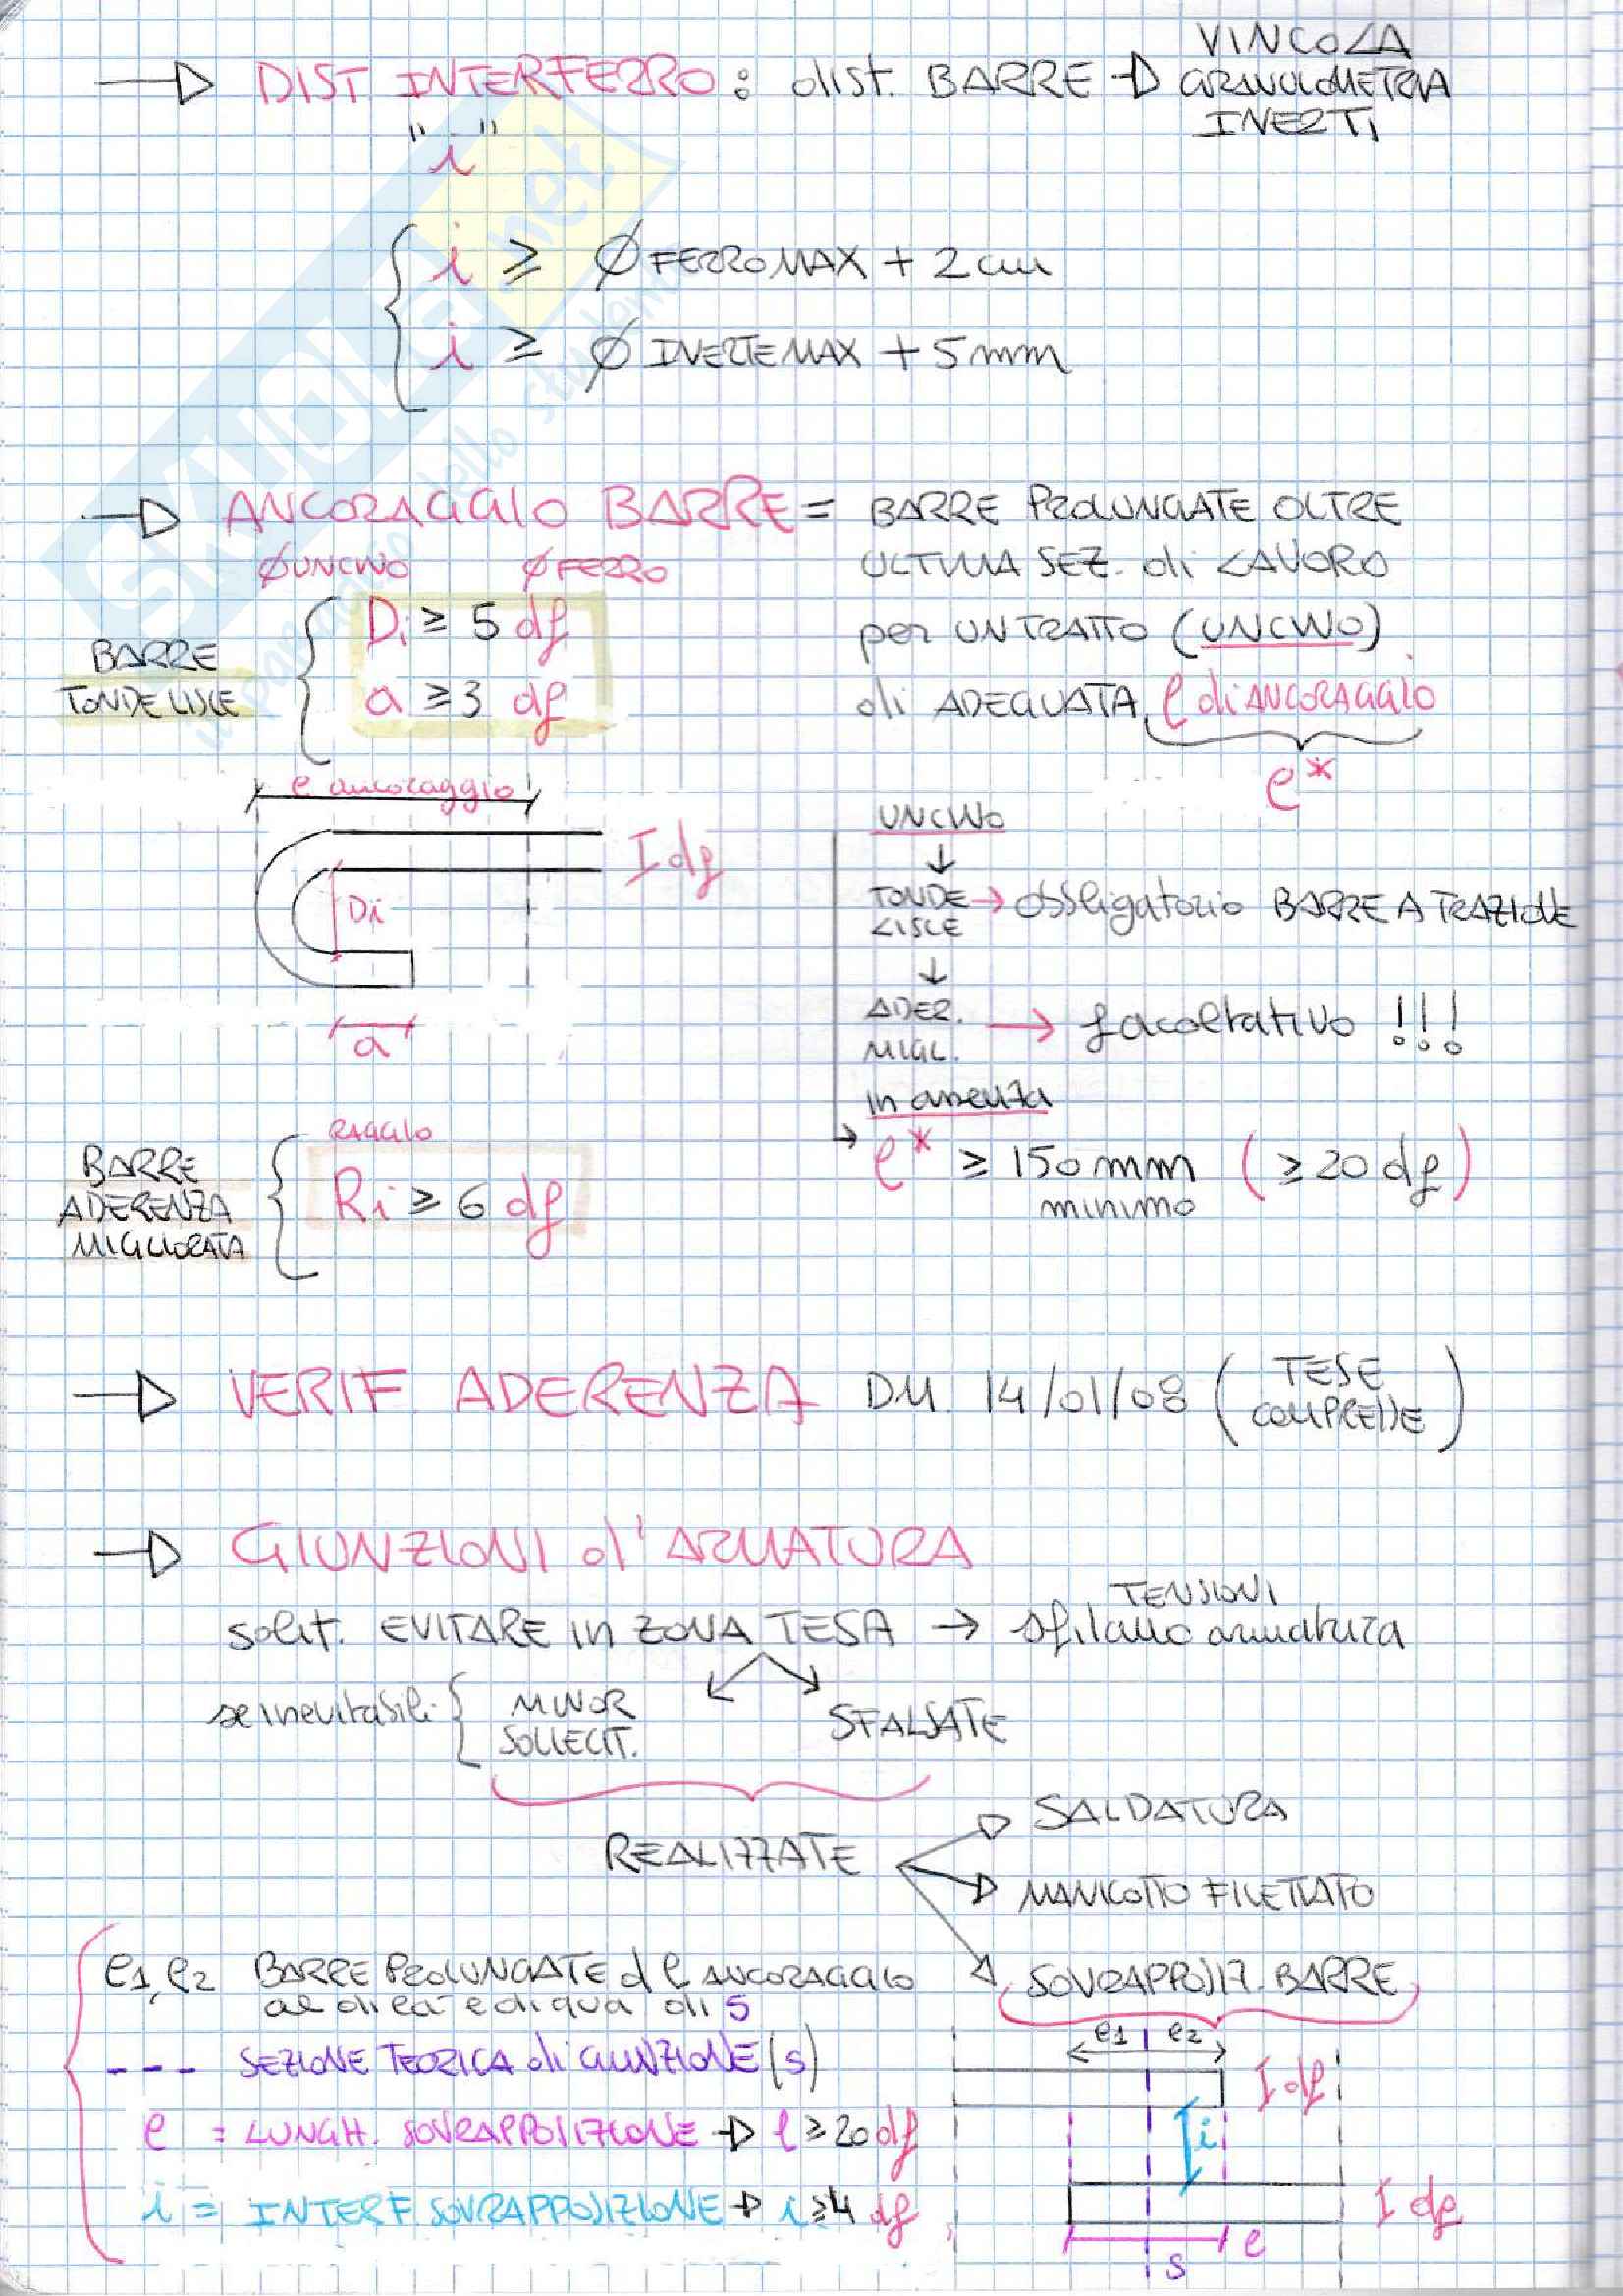 VINCOLA
→ DIST. INTERFERRO : dist. BARRE → GRANULOMETRIA
INERTI
"i"
i ≥ Ø FERRO MAX + 2 cm
i ≥ Ø INERTE MAX + 5 mm
→ ANCORAGGIO BARRE = BARRE PROLUNGATE OLTRE
ULTIMA SEZ. di LAVORO
per UN TRATTO (UNCINO)
di ADEGUATA l di ANCORAGGIO
l*
Ø UNCINO Ø FERRO
BARRE
TONDE LISCE
Di ≥ 5 df
a ≥ 3 df
l ancoraggio
I df
Di
a
UNCINO
↓
TONDE
LISCE → obbligatorio BARRE A TRAZIONE
↓
ADER.
MIGL. → facoltativo !!!
in assenza
l* ≥ 150 mm (≥ 20 df)
minimo
BARRE
ADERENZA
MIGLIORATA
RAGGIO
Ri ≥ 6 df
→ VERIF. ADERENZA D.M. 14/01/08 (TESE
COMPRESSE)
→ GIUNZIONI d'ARMATURA
TENSIONI
solit. EVITARE in ZONA TESA → sfilano armatura
se inevitabili
MINOR
SOLLECIT.
SFALSATE
REALIZZATE
SALDATURA
MANICOTTO FILETTATO
SOVRAPPOSIZ. BARRE
l1, l2 BARRE PROLUNGATE d l ANCORAGGIO
al di là e di qua di s
--- SEZIONE TEORICA di GIUNZIONE (s)
l = LUNGH. SOVRAPPOSIZIONE → l ≥ 20 df
i = INTERF. SOVRAPPOSIZIONE → i ≥ 4 df
l1 l2
I df
i
I df
l
s
SKUOLA.net
il paradiso dello studente